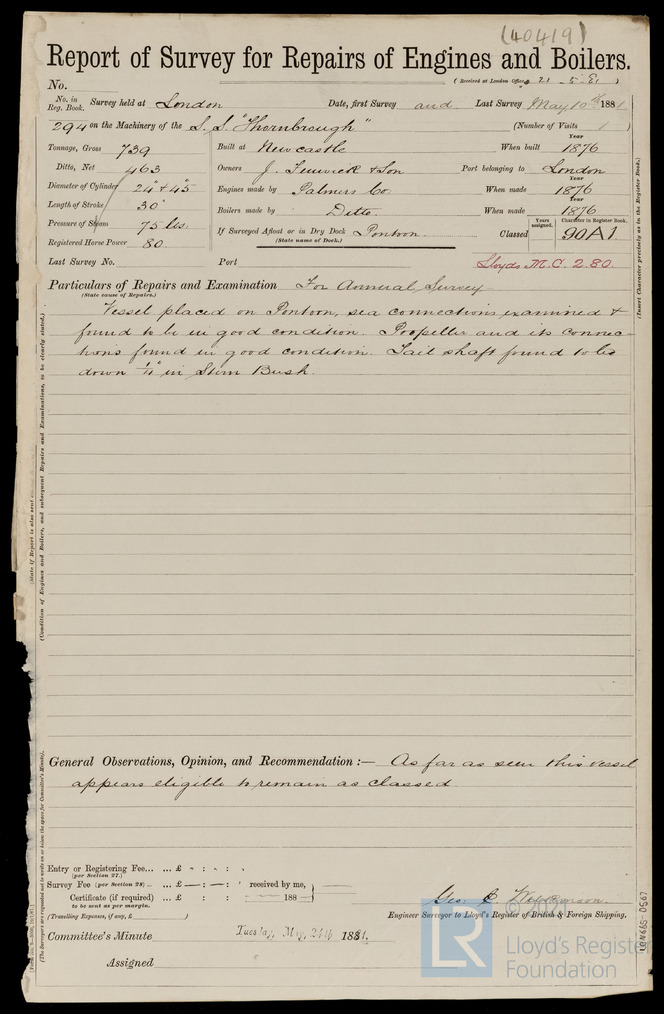 (40419)
Report of Survey for Repairs of Engines and Boilers.
(Received at London Office 21 - 5 - 81)
No.
No. in Reg. Book. Survey held at London Date, first Survey and Last Survey May 10th 1881
294 on the Machinery of the S.S. "Thornbrough" (Number of Visits 1)
Tonnage, Gross 739 Built at Newcastle When built Year 1876
Ditto, Net 463 Owners J. Fenwick & Son Port belonging to London
Diameter of Cylinder 24" & 45" Engines made by Palmers Co. When made Year 1876
Length of Stroke 30" Boilers made by Ditto. When made Year 1876
Pressure of Steam 75 lbs. If Surveyed Afloat or in Dry Dock Pontoon. Classed Years assigned. Character in Register Book. 90A1
(State name of Dock.)
Registered Horse Power 80
Last Survey No. Port Lloyds M.C. 2.80.
Particulars of Repairs and Examination For Annual Survey
(State cause of Repairs.)
Vessel placed on Pontoon, sea connections examined &
found to be in good condition. Propeller and its connec-
tions found in good condition. Tail shaft found to be
down 1/4" in Stern Bush.
General Observations, Opinion, and Recommendation :— As far as seen this vessel
appears eligible to remain as classed.
Entry or Registering Fee... ... £ - : - : -
(per Section 27.)
Survey Fee (per Section 28) ... ... £ — : — : received by me,
Certificate (if required) ... £ : : 188
to be sent as per margin.
(Travelling Expenses, if any, £ )
Geo. 
Engineer Surveyor to Lloyd's Register of British & Foreign Shipping.
Committee's Minute Tuesday, May 24th 1881.
Assigned
(Insert Character precisely as in the Register Book.)
(State if Report is also sent
(Condition of Engines and Boilers, and subsequent Repairs and Examinations, to be clearly stated.)
(The Surveyors are requested not to write on or below the space for Committee's Minute).
LON665-0567
LR
Lloyd's Register
Foundation